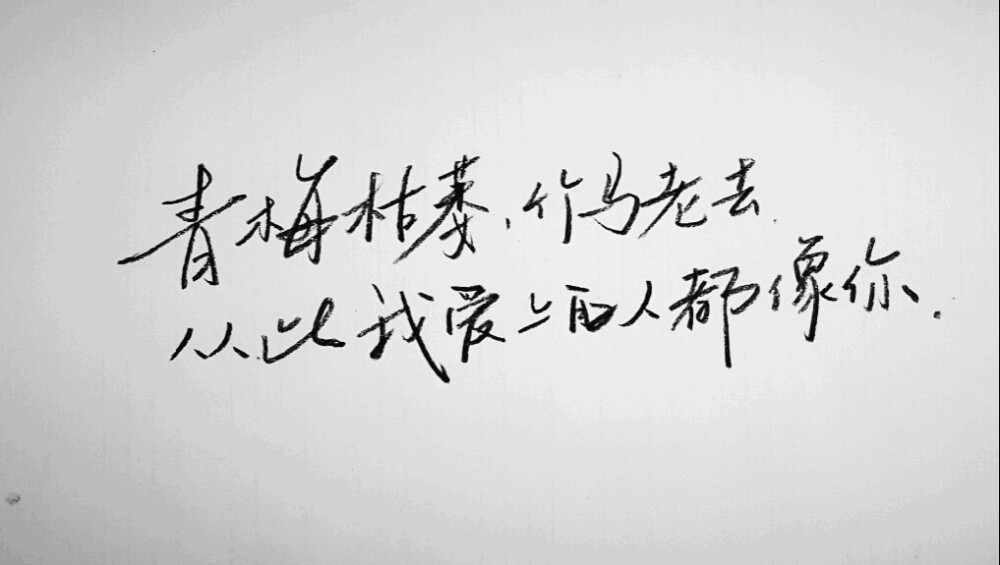 青梅枯萎,竹马老去.
从此我爱上的人都像你.